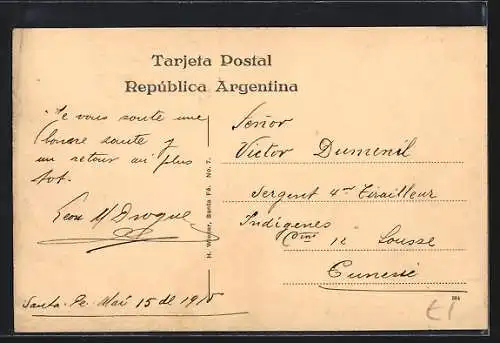 Tarjeta Postal
República Argentina
Je vous soute une
bonne sante y
un retour au plus
tot.
Leon
Santa-Fe. Mai 15 de 1915
H. Werner, Santa Fé. No. 7.
Señor
Victor Dumenil
Sergent 4me Tirailleur
Indigenes
Cie 1e Sousse
Tunesie
£1